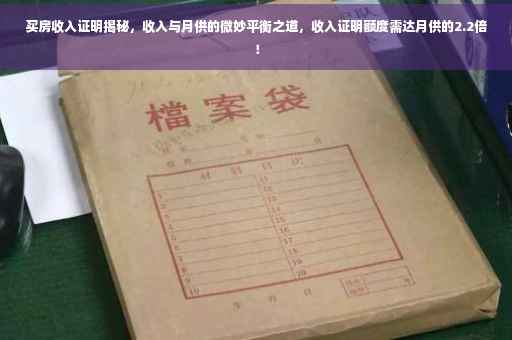 买房收入证明揭秘，收入与月供的微妙平衡之道，收入证明额度需达月供的2.2倍
！
檔案袋
材料目次
1 11
2 12
3 13
4 14
5 15
6 16
7 17
8 18
9 19
10 20
年 月 日